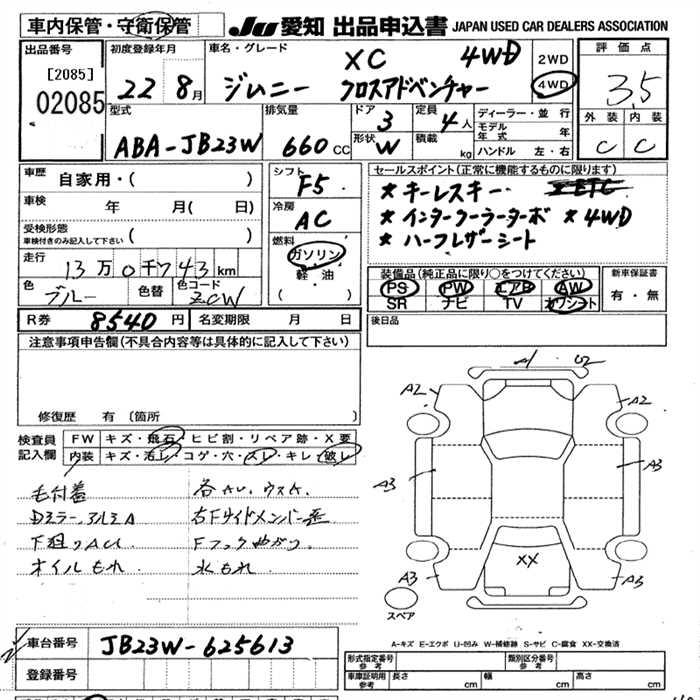 車内保管・守衛保管
JU 愛知 出品申込書 JAPAN USED CAR DEALERS ASSOCIATION
出品番号 [2085] 02085
初度登録年月 22年 8月
車名・グレード XC 4WD
ジムニー クロスアドベンチャー
2WD
4WD
評価点 3.5
外装 内装
C C
型式 ABA-JB23W
排気量 660 CC
ドア 3
形状 W
定員 4人
積載 kg
ディーラー・並行
モデル年式 年
ハンドル 左・右
車歴 自家用・( )
車検 年 月( 日)
受検形態 ( )
車検付きのみ記入して下さい
走行 13万0千743km
色 ブルー 色替 色コード ZCW
シフト F5
冷房 AC
燃料 ガソリン
軽・油
( )
セールスポイント(正常に機能するものに限ります)
* キーレスキー
* インタークーラーターボ * 4WD
* ハーフレザーシート
装備品(純正品に限り○をつけてください)
PS PW エアB AW
SR ナビ TV カワシート
新車保証書
有・無
後日品
R券 8540円 名変期限 月 日
注意事項申告欄(不具合内容等は具体的に記入して下さい)
修復歴 有 (箇所
検査員記入欄 FW キズ・飛石・ヒビ割・リペア跡・X要
内装 キズ・汚レ・コゲ・穴・スレ・キレ・破レ
下廻り
オイルもれ 水もれ
A2 A2
A3 A3
XX
A3 A3
スペア
A-キズ E-エクボ U-凹み W-補修跡 S-サビ C-腐食 XX-交換済
車台番号 JB23W-625613
登録番号
形式指定番号 参考 類別区分番号 参考
車庫証明用 参考 長さ cm 幅 cm 高さ cm